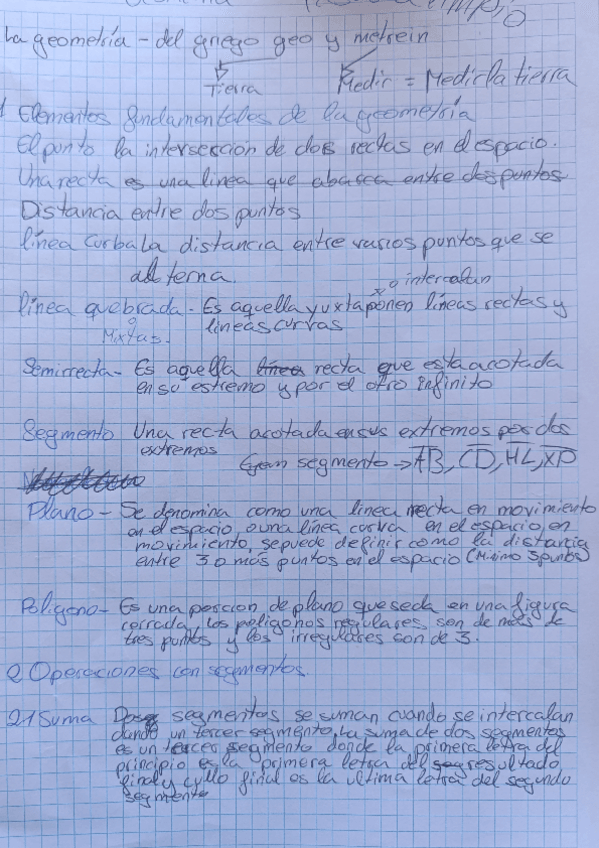 La geometría - del griego geo y metrein
Tierra Medir = Medir la tierra
1 Elementos fundamentales de la geometría
El punto la intersección de dos rectas en el espacio.
Una recta es una linea que abarca entre dos puntos
Distancia entre dos puntos
línea curba La distancia entre varios puntos que se
alterna.
x o intercalan
línea quebrada - Es aquella yuxtaponen líneas rectas y
o Mixtas. líneas curvas
Semirrecta - Es aquella línea recta que esta acotada
en su estremo y por el otro infinito
Segmento Una recta acotada en sus extremos por dos
extremos
segmento → AB, CD, HL, XP
Plano - Se denomina como una linea recta en movimiento
en el espacio, o una línea curva en el espacio, en
movimiento, se puede definir como la distancia
entre 3 o más puntos en el espacio (Mínimo 3 puntos)
Poligono - Es una porcion de plano que se da en una figura
cerrada, los poligonos regulares son de más de
tres puntos y los irregulares son de 3.
2 Operaciones con segmentos.
2.1 Suma Dos segmentos se suman cuando se intercalan
dando un tercer segmento, La suma de dos segmentos
es un tercer segmento donde la primera letra del
principio es la primera letra del resultado
final y cullo final es la ultima letra del segundo
segmento